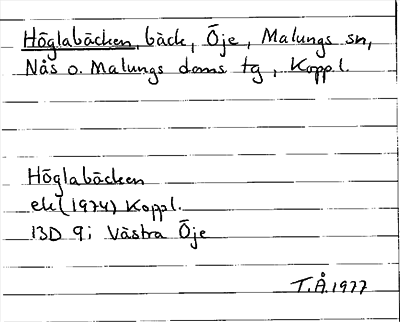 Höglabäcken, bäck, Öje, Malungs sn,
Nås o. Malungs doms tg, Koppl.
Höglabäcken
ek (1974) Koppl.
13D 9i Västra Öje
T.Å. 1977